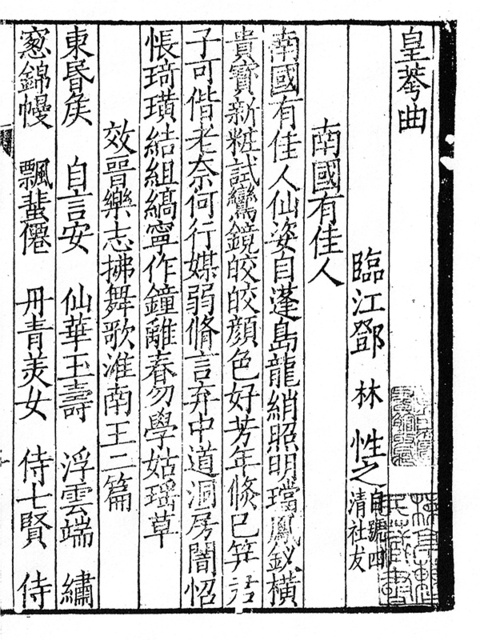 皇荂曲
臨江鄧 林 性之 自號四清社友
南國有佳人
南國有佳人仙姿自蓬島龍綃照明璫鳳釵橫
貴寶新粧試鸞鏡皎皎顔色好芳年倐已笄君
子可偕老奈何行媒弱脩言弃中道洞房闇怊
悵琦璜結組縞寧作鐘離春勿學姑瑶草
效晉樂志拂舞歌淮南王二篇
東昏矦 自言安 仙華玉壽 浮雲端 繡
窓錦幔 飄蜚僊 丹青美女 侍七賢 侍